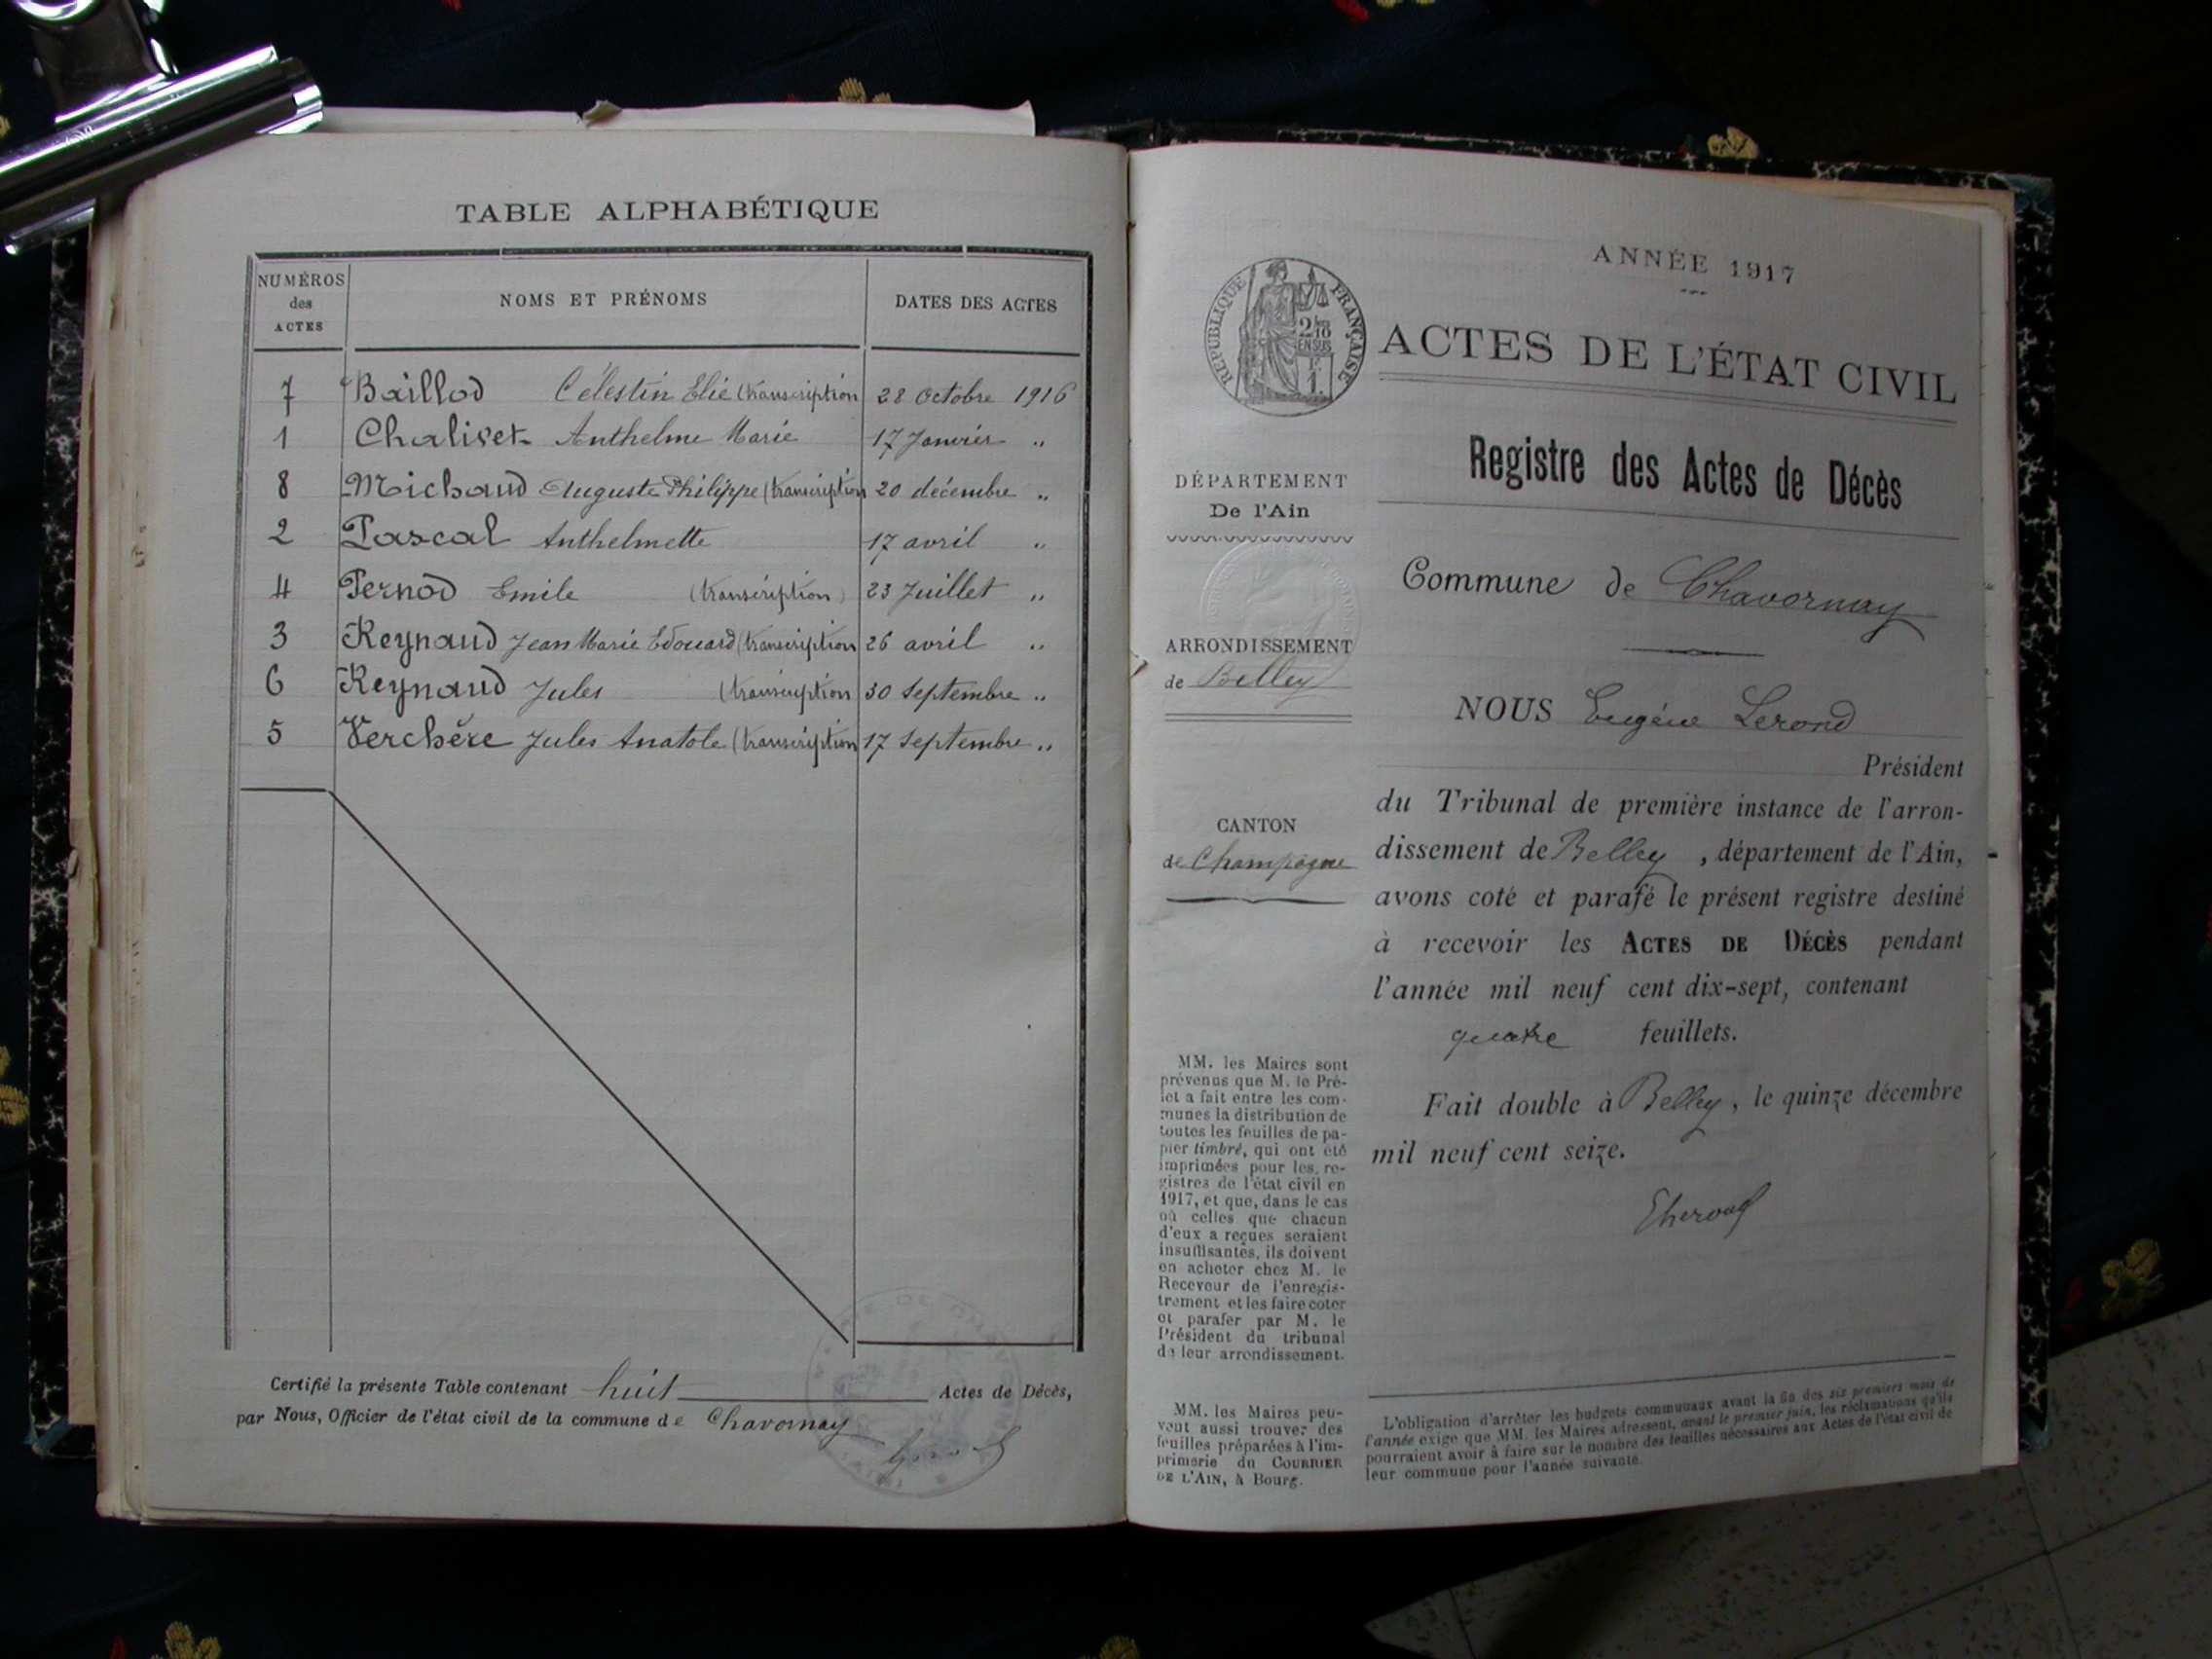 TABLE ALPHABÉTIQUE
NUMÉROS des ACTES NOMS ET PRÉNOMS DATES DES ACTES
7 Baillod Célestin Elie (transcription 28 Octobre 1916
1 Chaliset Anthelme Marie 17 Janvier "
8 Michaud Auguste Philippe (transcription 20 décembre "
2 Pascal Anthelmette 17 avril "
4 Pernod Emile (transcription) 23 Juillet "
3 Reynaud Jean Marie Edouard (transcription 26 avril "
6 Reynaud Jules (transcription 30 Septembre "
5 Verchère Jules Anatole (transcription 17 Septembre "
Certifié la présente Table contenant huit Actes de Décès,
par Nous, Officier de l'état civil de la commune de Chavornay
ANNÉE 1917
RÉPUBLIQUE FRANÇAISE
EN SUS
ACTES DE L'ÉTAT CIVIL
Registre des Actes de Décès
DÉPARTEMENT
De l'Ain
ARRONDISSEMENT
de Belley
CANTON
de Champagne
MM. les Maires sont
prévenus que M. le Pré-
fet a fait entre les com-
munes la distribution de
toutes les feuilles de pa-
pier timbré, qui ont été
imprimées pour les re-
gistres de l'état civil en
1917, et que, dans le cas
où celles que chacun
d'eux a reçues seraient
insuffisantes, ils doivent
en acheter chez M. le
Receveur de l'enregis-
trement et les faire coter
et parafer par M. le
Président du tribunal
de leur arrondissement.
MM. les Maires peu-
vent aussi trouver des
feuilles préparées à l'im-
primerie du COURRIER
DE L'AIN, à Bourg.
Commune de Chavornay
NOUS Eugène Lerond
Président
du Tribunal de première instance de l'arron-
dissement de Belley, département de l'Ain,
avons coté et parafé le présent registre destiné
à recevoir les ACTES DE DÉCÈS pendant
l'année mil neuf cent dix-sept, contenant
quatre feuillets.
Fait double à Belley, le quinze décembre
mil neuf cent seize.
L'obligation d'arrêter les budgets communaux avant la fin des six premiers mois de
l'année exige que MM. les Maires adressent, avant le premier juin, les réclamations qu'ils
pourraient avoir à faire sur le nombre des feuilles nécessaires aux Actes de l'état civil de
leur commune pour l'année suivante.